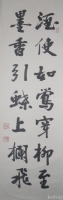 酒使如鶯穿柳至
墨香引蝶上欄飛